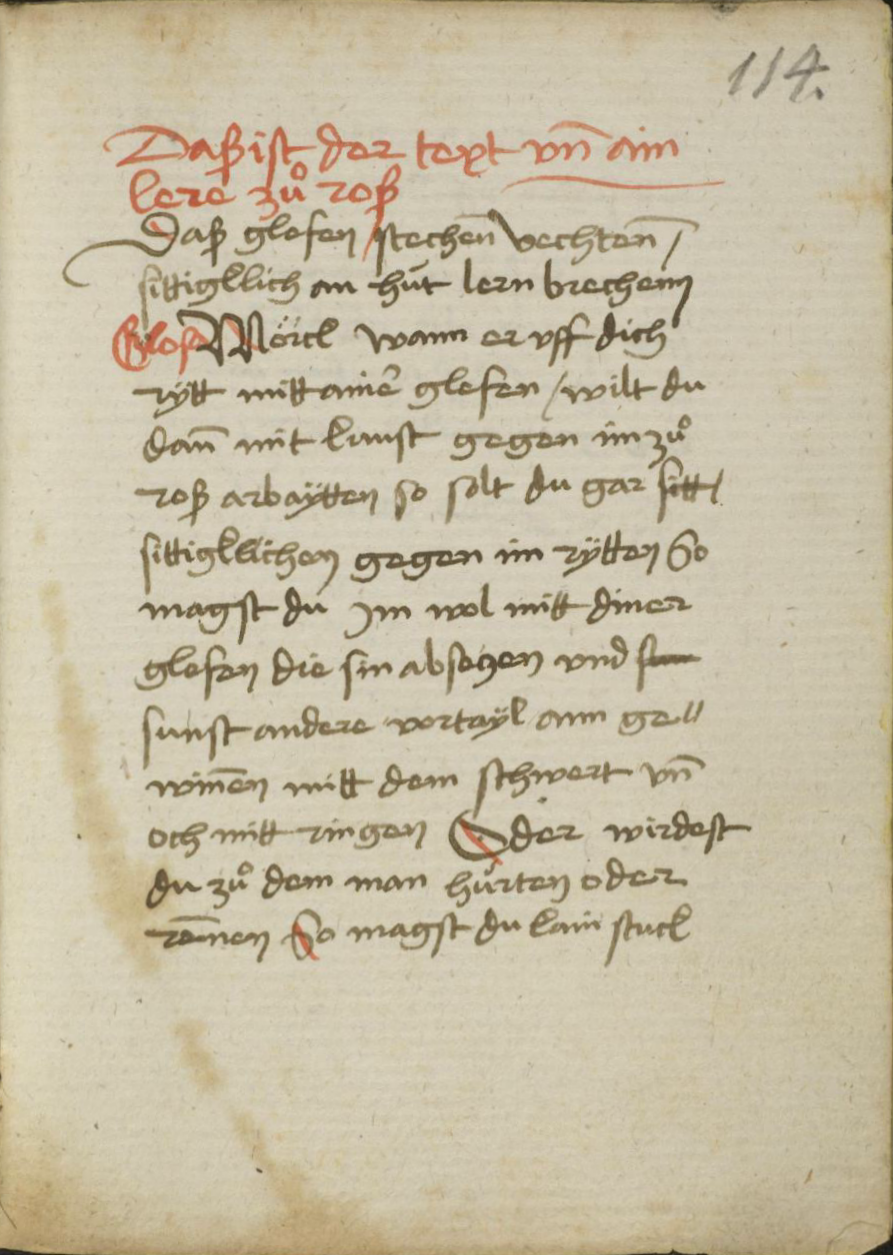 114.
Daß ist der text vn̄ ain
lere zuͦ roß
Daß glefen stechen̄ vechten̄ /
sittigllich an huͤt lern brechenn
Glosa Mörck wann er vff dich
rÿtt mitt ainer̄ glefen / wilt du
dan̄ mit kunst gegen im zuͦ
roß arbaÿtten so solt du gar sitt /
sittigllichen gegen im rÿtten So
magst du Im wol mitt diner
glefen die sin abseczen vnd
sunst andere vortaÿl ann ge〃
win̄en mitt dem schwert vn̄
och mitt ringen Oder wirdest
du zuͦ dem man huͤrten oder
ren̄nen So magst du kain stuck